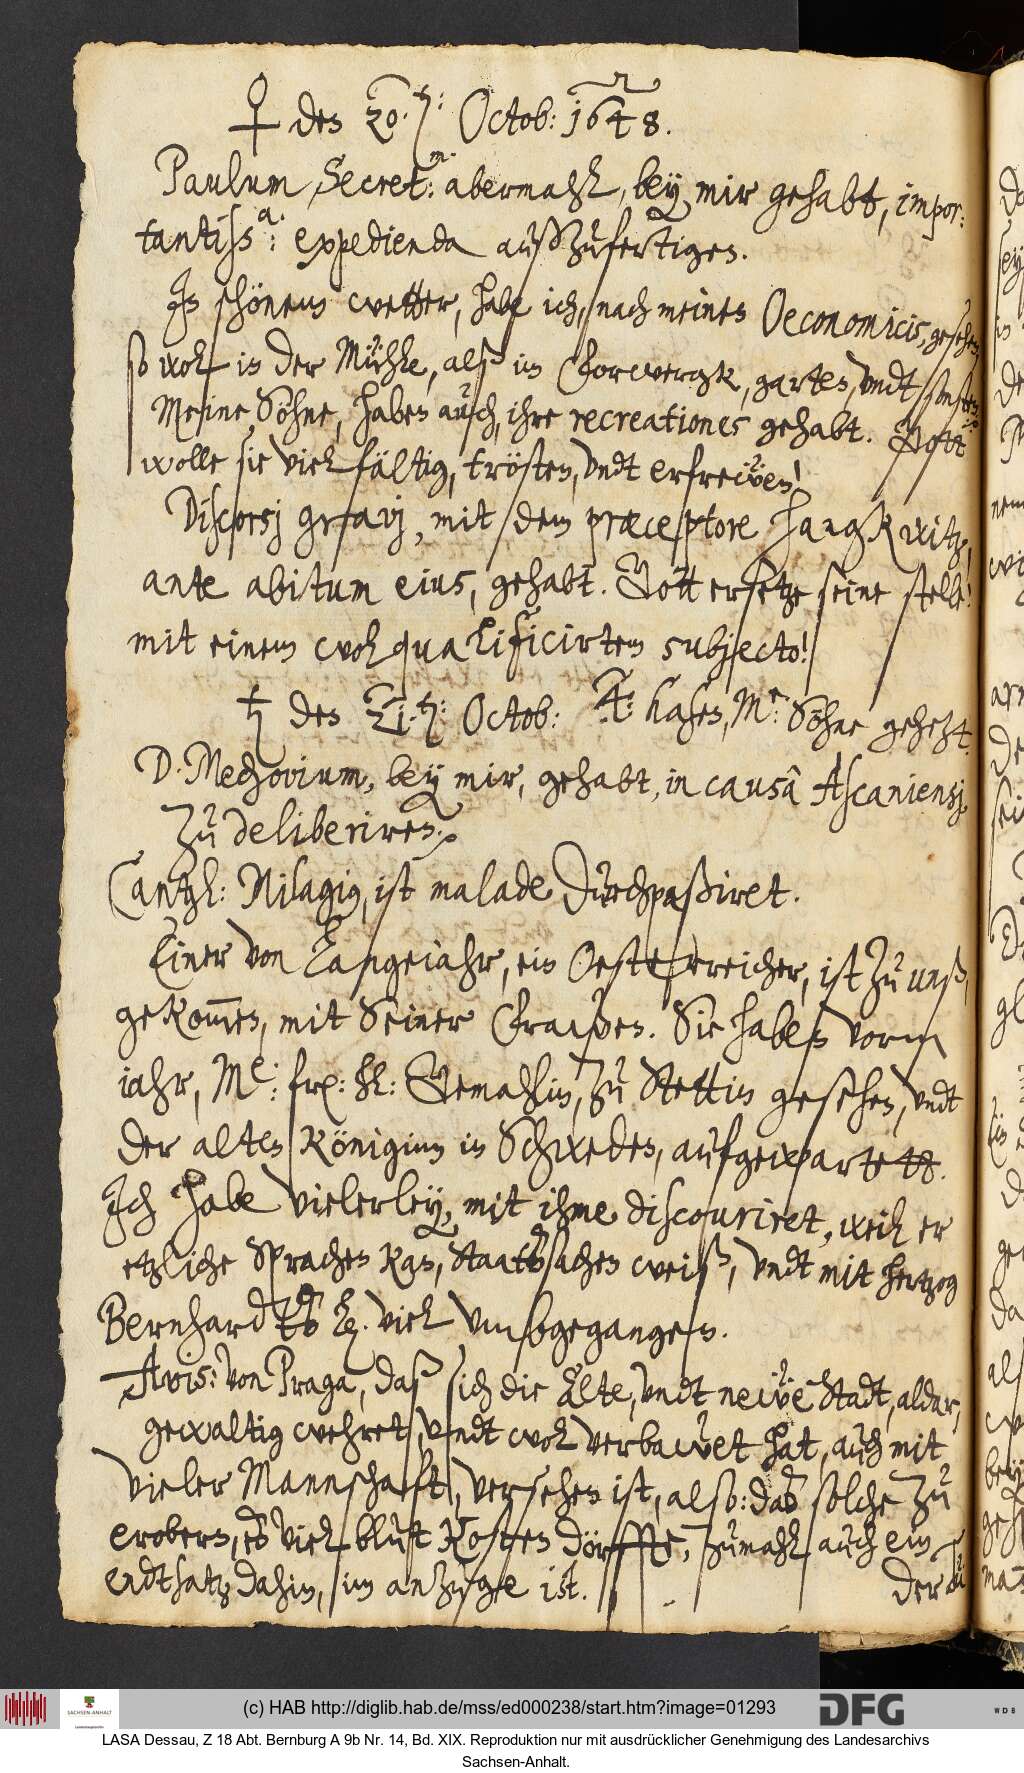 ♀ den 20. h: Octob: 1648.
Paulum, Secret.m: abermahl, bey mir gehabt, impor:
tantiss.a: expedienda außzufertigen.
In schönem wetter, habe ich, nach meinen Oeconomicis, gesehen,
so wol in der Mühle, alß im Vorwergk, garten, undt sonsten.
Meine Söhne, haben auch, ihre recreationes gehabt. Gott
wolle sie vielfältig, trösten, undt erfrewen!
Discorsj gravj, mit dem præceptore Hanckwitz,
ante abitum eius, gehabt. Gott ersetze seine stelle!
mit einem wol qualificirtem subjecto!
♄ den 21. h: Octob: hasen, Me: Söhne gehetzt.
D. Mechovium, bey mir, gehabt, in causâ Ascaniensj
zu deliberiren.
Cantzl: Milagius, ist malade durchpaßiret.
Einer von Langeiahr, ein Oesterreicher, ist zu unß,
gekommen, mit Seiner Frawen. Sie haben vorm
iahr, Me: fr: hl: Gemahlin, zu Stettin gesehen, undt
der alten Königinn in Schweden, aufgewartett.
Ich habe vielerley, mit ihme discouriret, weil er
etzliche Sprachen kan, Staatßsachen weiß, undt mit hertzog
Bernhard viel umbgegangen.
Avis: von Praga, daß sich die Alte, undt newe Stadt, aldar,
gewaltig wehret, undt wol verbawet hat, auch mit
vieler Mannschafft, versehen ist, also: daß solche zu
erobern, eß viel bluht kosten dörffte, zumahl auch ein
endtsatz dahin, im anzuge ist.
der
(c) HAB http://diglib.hab.de/mss/ed000238/start.htm?image=01293
SACHSEN-ANHALT
DFG
WDB
LASA Dessau, Z 18 Abt. Bernburg A 9b Nr. 14, Bd. XIX. Reproduktion nur mit ausdrücklicher Genehmigung des Landesarchivs
Sachsen-Anhalt.